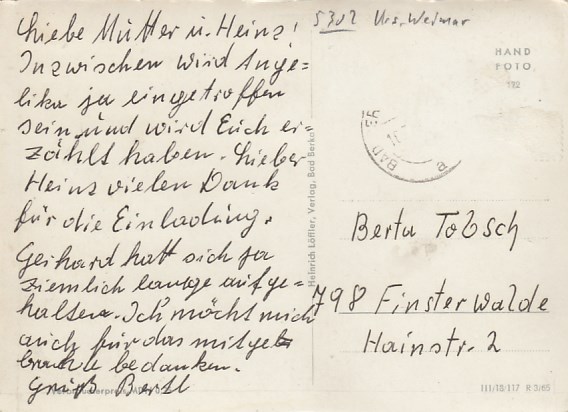 Liebe Mutter u. Heinz!
Inzwischen wird Ange-
lika ja eingetroffen
sein und wird Euch er-
zählt haben. Lieber
Heinz vielen Dank
für die Einladung.
Gerhard hatt sich ja
ziemlich lange aufge-
halten. Ich möcht mich
auch für das mitge
bedanken.
Gruß
5302
Weimar
HAND
FOTO
BAD
Heinrich Löffler, Verlag, Bad Berka
Berta Tobsch
798 Finsterwalde
Hainstr. 2
III/18/117 R 3/65